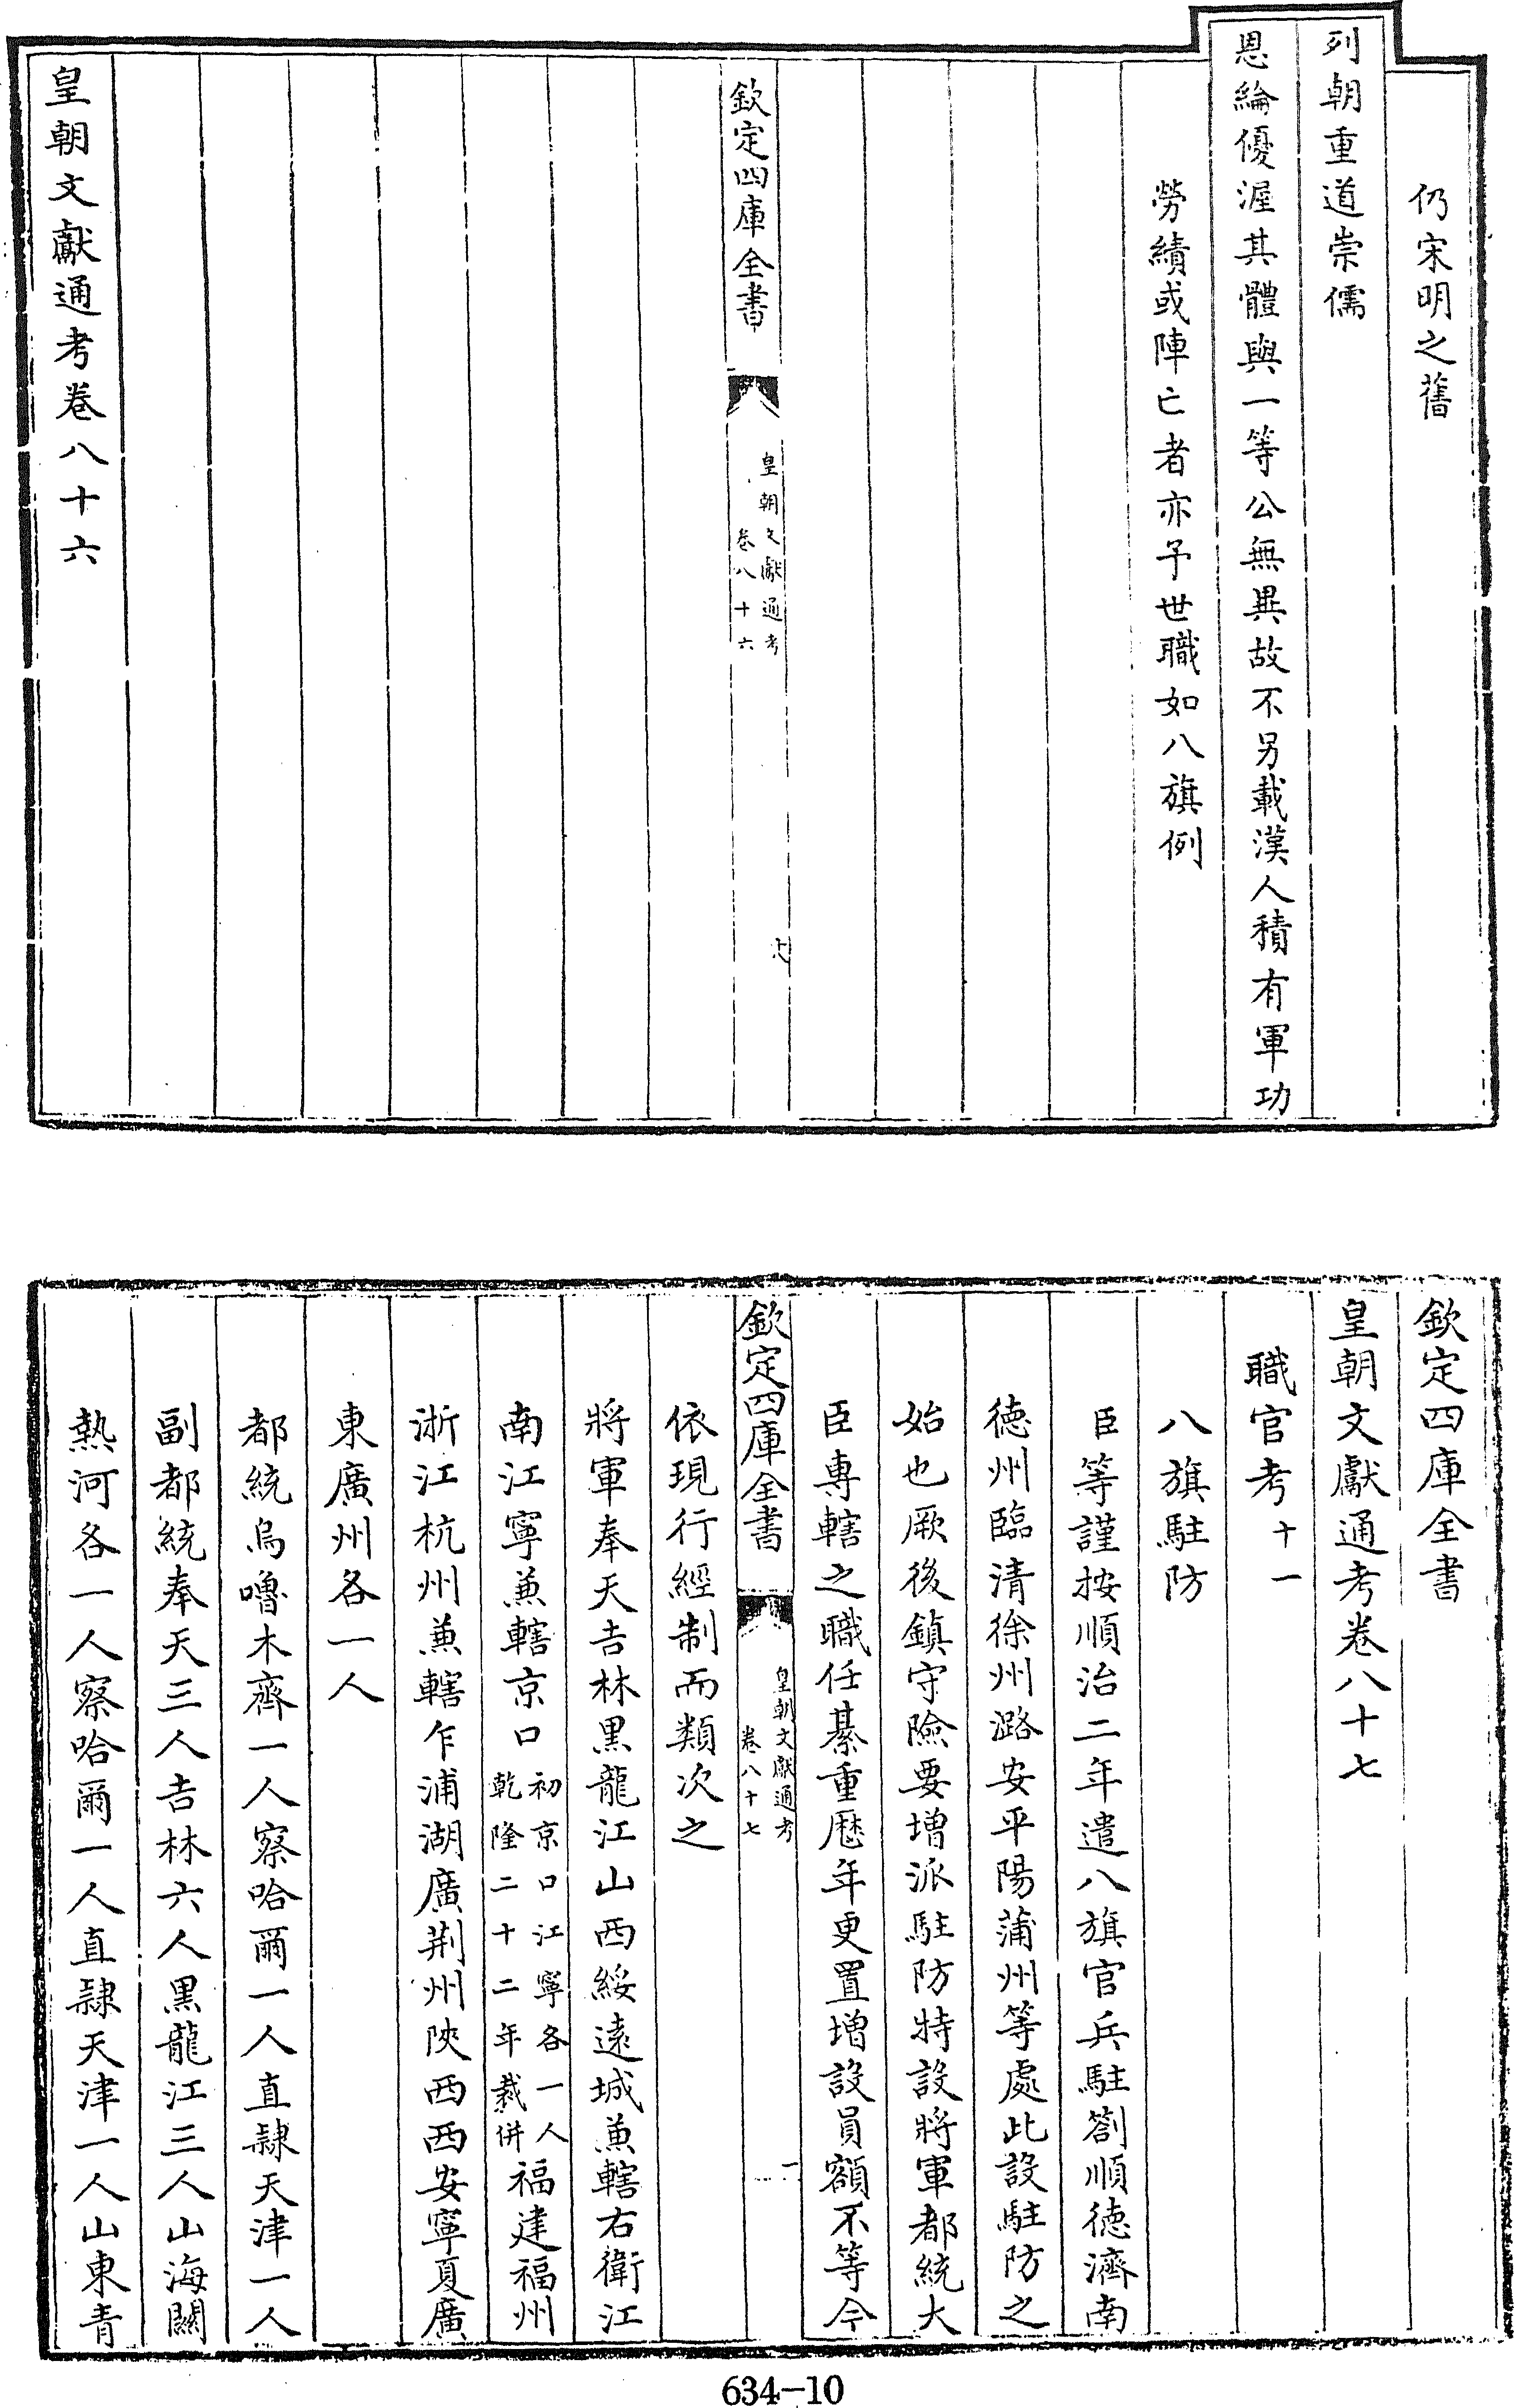 仍宋明之舊
列朝重道崇儒
恩綸優渥其體與一等公無異故不另載漢人積有軍功
勞績或陣亡者亦予世職如八旗例
欽定四庫全書
皇朝文獻通考
卷八十六
皇朝文獻通考卷八十六
欽定四庫全書
皇朝文獻通考卷八十七
職官考十一
八旗駐防
臣等謹按順治二年遣八旗官兵駐劄順德濟南
德州臨清徐州潞安平陽蒲州等處此設駐防之
始也厥後鎮守險要增派駐防特設將軍都統大
臣專轄之職任綦重歷年更置增設員額不等今
欽定四庫全書
皇朝文獻通考
卷八十七
一
依現行經制而類次之
將軍奉天吉林黑龍江山西綏遠城兼轄右衛江
南江寧兼轄京口初京口江寧各一人乾隆二十二年裁併福建福州
浙江杭州兼轄乍浦湖廣荊州陝西西安寧夏廣
東廣州各一人
都統烏嚕木齊一人察哈爾一人直隸天津一人
副都統奉天三人吉林六人黑龍江三人山海關
熱河各一人察哈爾一人直隸天津一人山東青
634-10